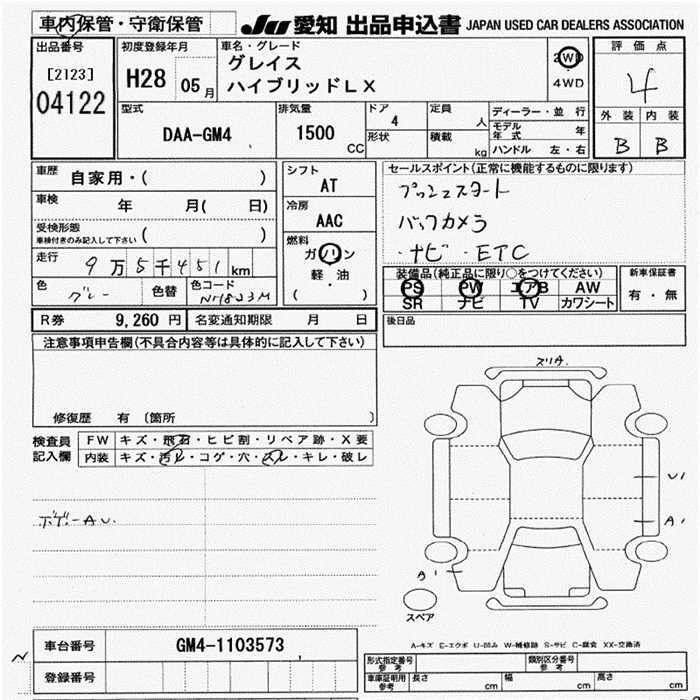 車内保管・守衛保管
JU 愛知 出品申込書 JAPAN USED CAR DEALERS ASSOCIATION
出品番号
[2123]
04122
初度登録年月
H28 05月
車名・グレード
グレイス
ハイブリッドLX
2WD
4WD
評価点
4
外装 内装
B B
型式
DAA-GM4
排気量
1500 CC
ドア
4
形状
定員
人
積載
kg
ディーラー・並行
モデル年式 年
ハンドル 左・右
車歴
自家用・( )
車検
年 月( 日)
受検形態
車検付きのみ記入して下さい ( )
走行
9万5千451km
色
グレー
色替
色コード
NH823M
シフト
AT
冷房
AAC
燃料
ガソリン
軽・油
( )
セールスポイント(正常に機能するものに限ります)
プッシュスタート
バックカメラ
・ナビ・ETC
装備品(純正品に限り○をつけてください)
PS PW エアB AW
SR ナビ TV カワシート
新車保証書
有・無
R券 9,260円 名変通知期限 月 日
後日品
注意事項申告欄(不具合内容等は具体的に記入して下さい)
修復歴 有 (箇所 )
検査員
記入欄
FW キズ・飛石・ヒビ割・リペア跡・X要
内装 キズ・汚れ・コゲ・穴・スレ・キレ・破レ
ボデーAU.
スリA.
U1
A1
A1
スペア
A-キズ E-エクボ U-凹み W-補修跡 S-サビ C-腐食 XX-交換済
車台番号 GM4-1103573
登録番号
形式指定番号
参考
類別区分番号
参考
車庫証明用
参考
長さ cm 幅 cm 高さ cm